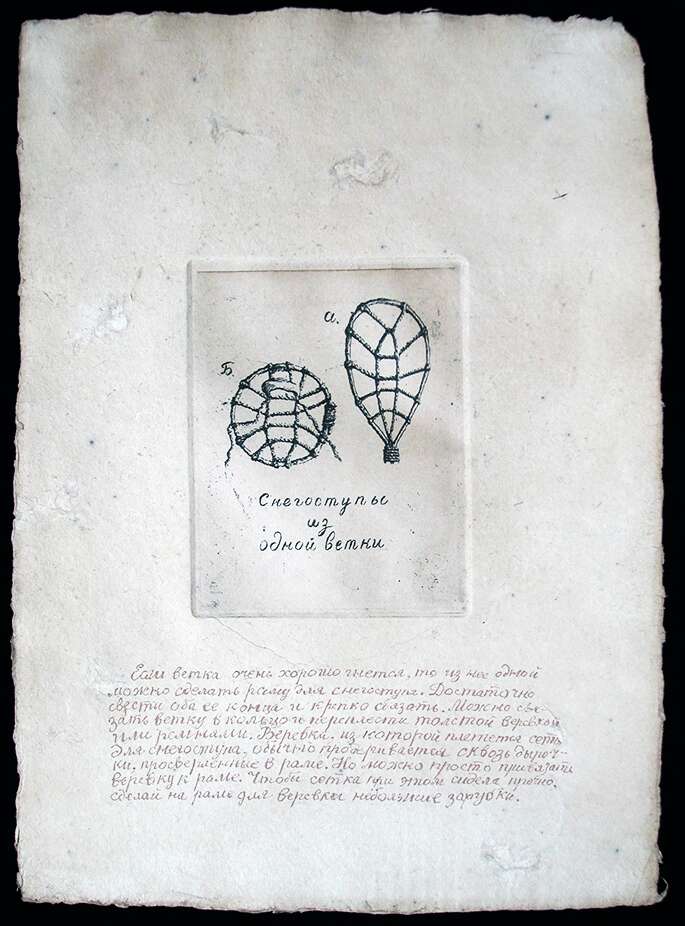 а.
Б.
Снегоступы
из
одной ветки
Если ветка очень хорошо гнется, то из нее одной
можно сделать раму для снегоступа. Достаточно
свести оба ее конца и крепко связать. Можно свя-
зать ветку в кольцо и переплести толстой веревкой
или ремнями. Веревка, из которой плетется сеть
для снегоступа, обычно продергивается сквозь дыроч-
ки, просверленные в раме. Но можно просто привязать
веревку к раме. Чтобы сетка при этом сидела прочно,
сделай на раме для веревки небольшие зарубки.